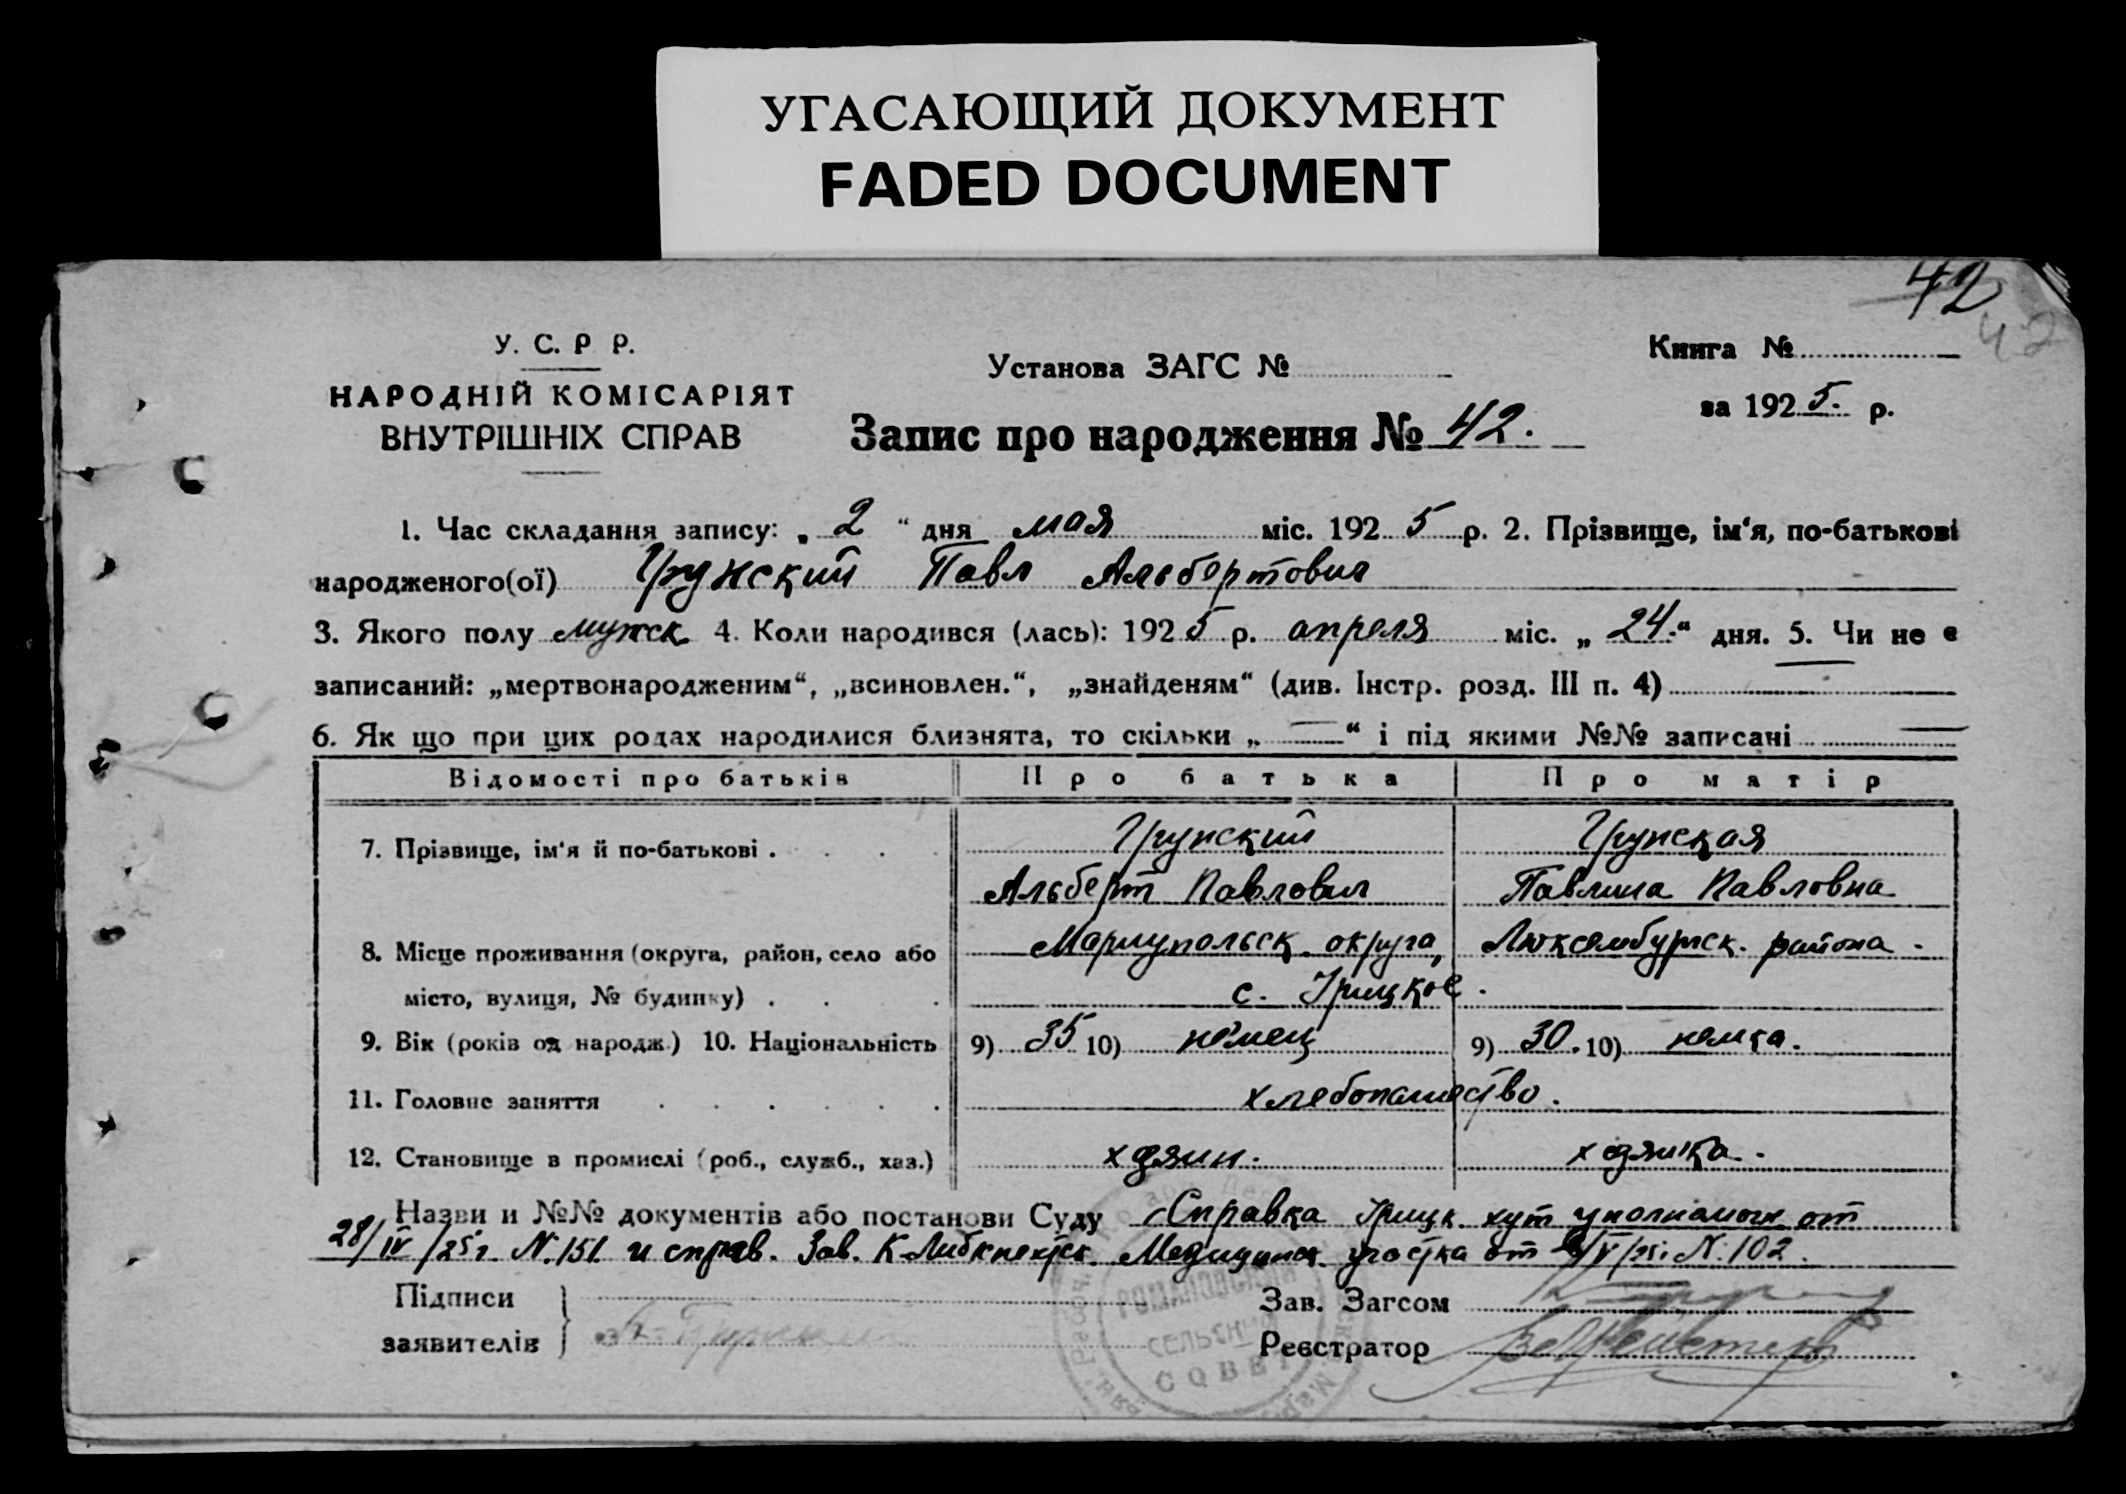 УГАСАЮЩИЙ ДОКУМЕНТ
FADED DOCUMENT
42
42
У. С. Р Р.
НАРОДНІЙ КОМІСАРІЯТ
ВНУТРІШНІХ СПРАВ
Установа ЗАГС №
Запис про народження № 42.
Книга №
за 1925. р.
1. Час складання запису: „ 2 “ дня мая міс. 192 5 р. 2. Прізвище, ім‘я, по-батькові
народженого(ої) Грунский Павл Альбертович
3. Якого полу мужск 4. Коли народився (лась): 192 5 р. апреля міс. „ 24.“ дня. 5. Чи не є
записаний: „мертвонародженим“, „всиновлен.“, „знайденям“ (див. Інстр. розд. III п. 4)
6. Як що при цих родах народилися близнята, то скільки „ — “ і під якими №№ записані —
Відомості про батьків Про батька Про матір
7. Прізвище, ім‘я й по-батькові . Грунский Грунская
Альберт Павлович Павлина Павловна
8. Місце проживання (округа, район, село або Мариупольск. округа, Люксембургск. района.
місто, вулиця, № будинку) . с. Грицкое.
9. Вік (років од народж.) 10. Національність 9) 35 10) немец 9) 30. 10) немка.
11. Головне заняття хлебопашество.
12. Становище в промислі (роб., служб., хаз.) хозяин. хозяйка.
Назви и №№ документів або постанови Суду Справка Грицк. хут уполномоч от
28/IV/25 г. N. 151 и справ. Зав. К-Либкнехтск Медицинск участка от /V/25. N. 102.
Підписи
заявителів
Зав. Загсом
Реєстратор
РОМАНОВСКИЙ
СЕЛЬСКИЙ
СОВЕТ